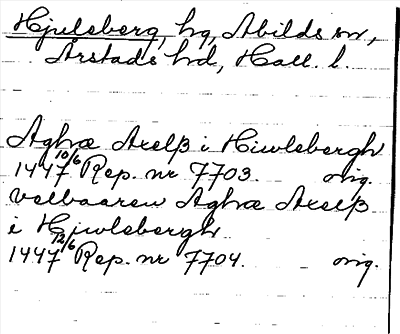 Hjulsberg, hg, Abilds sn,
Årstads hd, Hall. l.
Aghæ Axelß i Hiwlsbergh
1447 10/6 Rep. nr 7703. orig.
velbaaren Aghæ Axelß
i Hjwlsbergh
1447 12/6 Rep. nr 7704. orig.